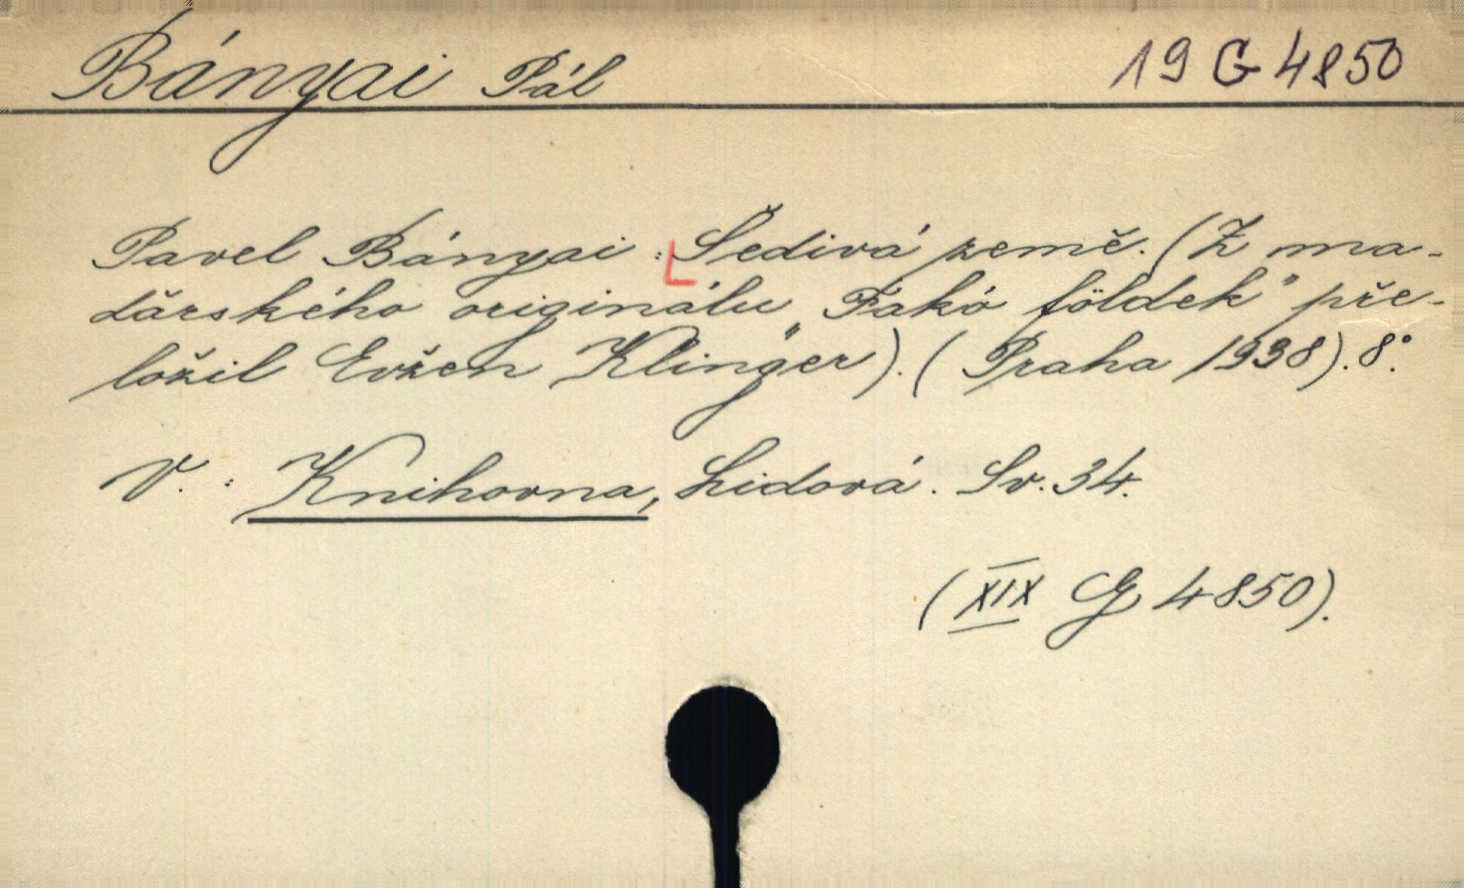 Bányai Pál 19 G 4850
Pavel Bányai: Šedivá země. (Z ma-
ďarského originálu „Fakó földek" pře-
ložil Evžen Klinger). (Praha 1938). 8°.
V.: Knihovna, Lidová. Sv. 34.
(XIX G 4850).